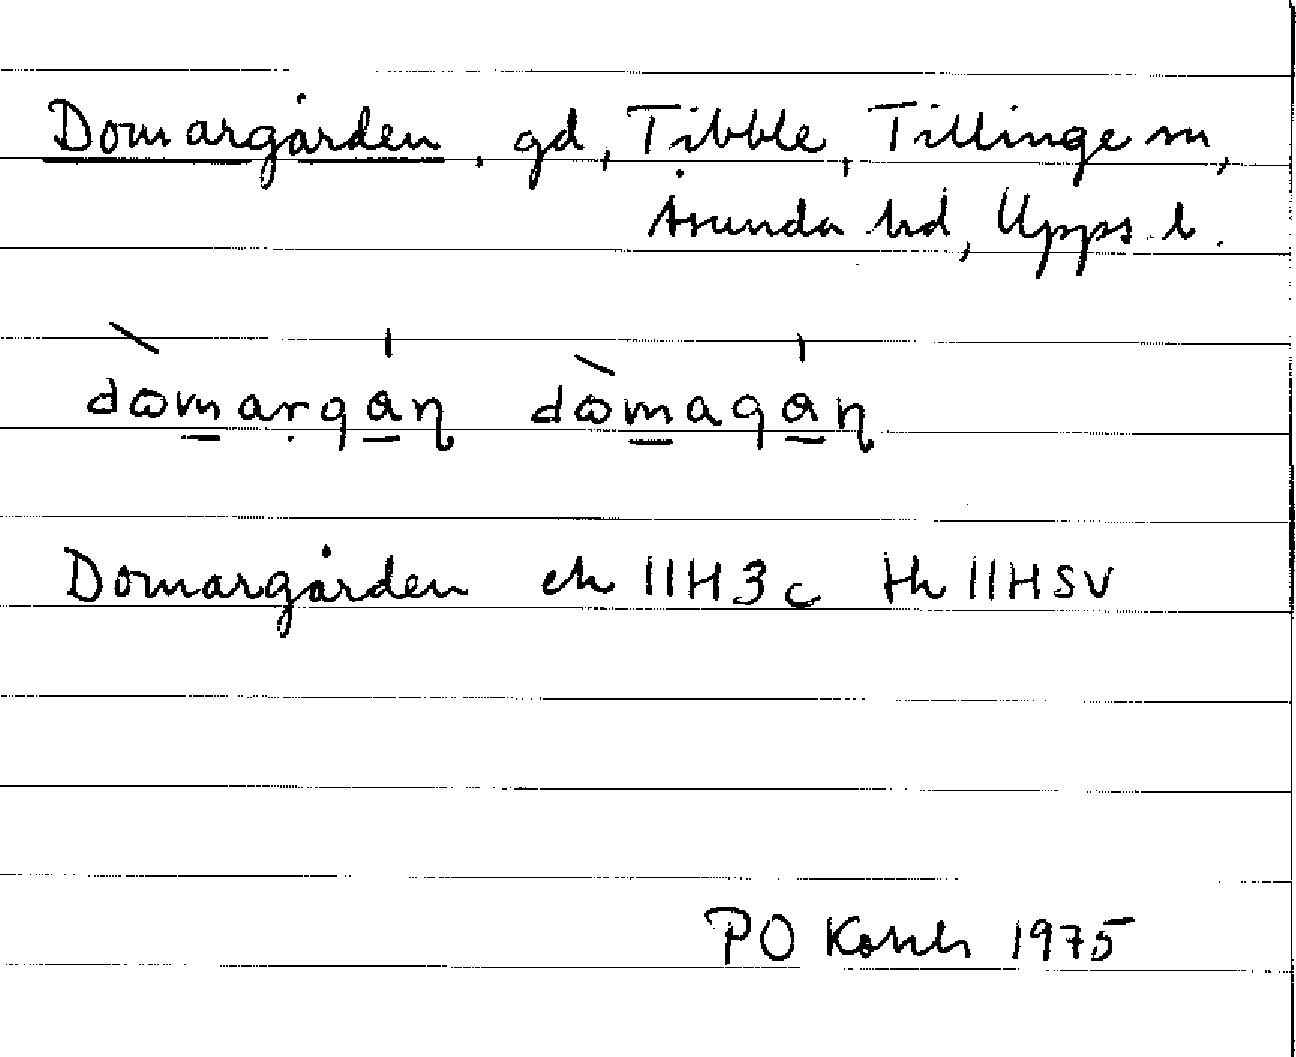 Domargården, gd, Tibble, Tillinge sn,
Åsunda hd, Upps l.
dωmargan dωmagan
Domargården ek 11H3c tk 11HSV
PO 1975